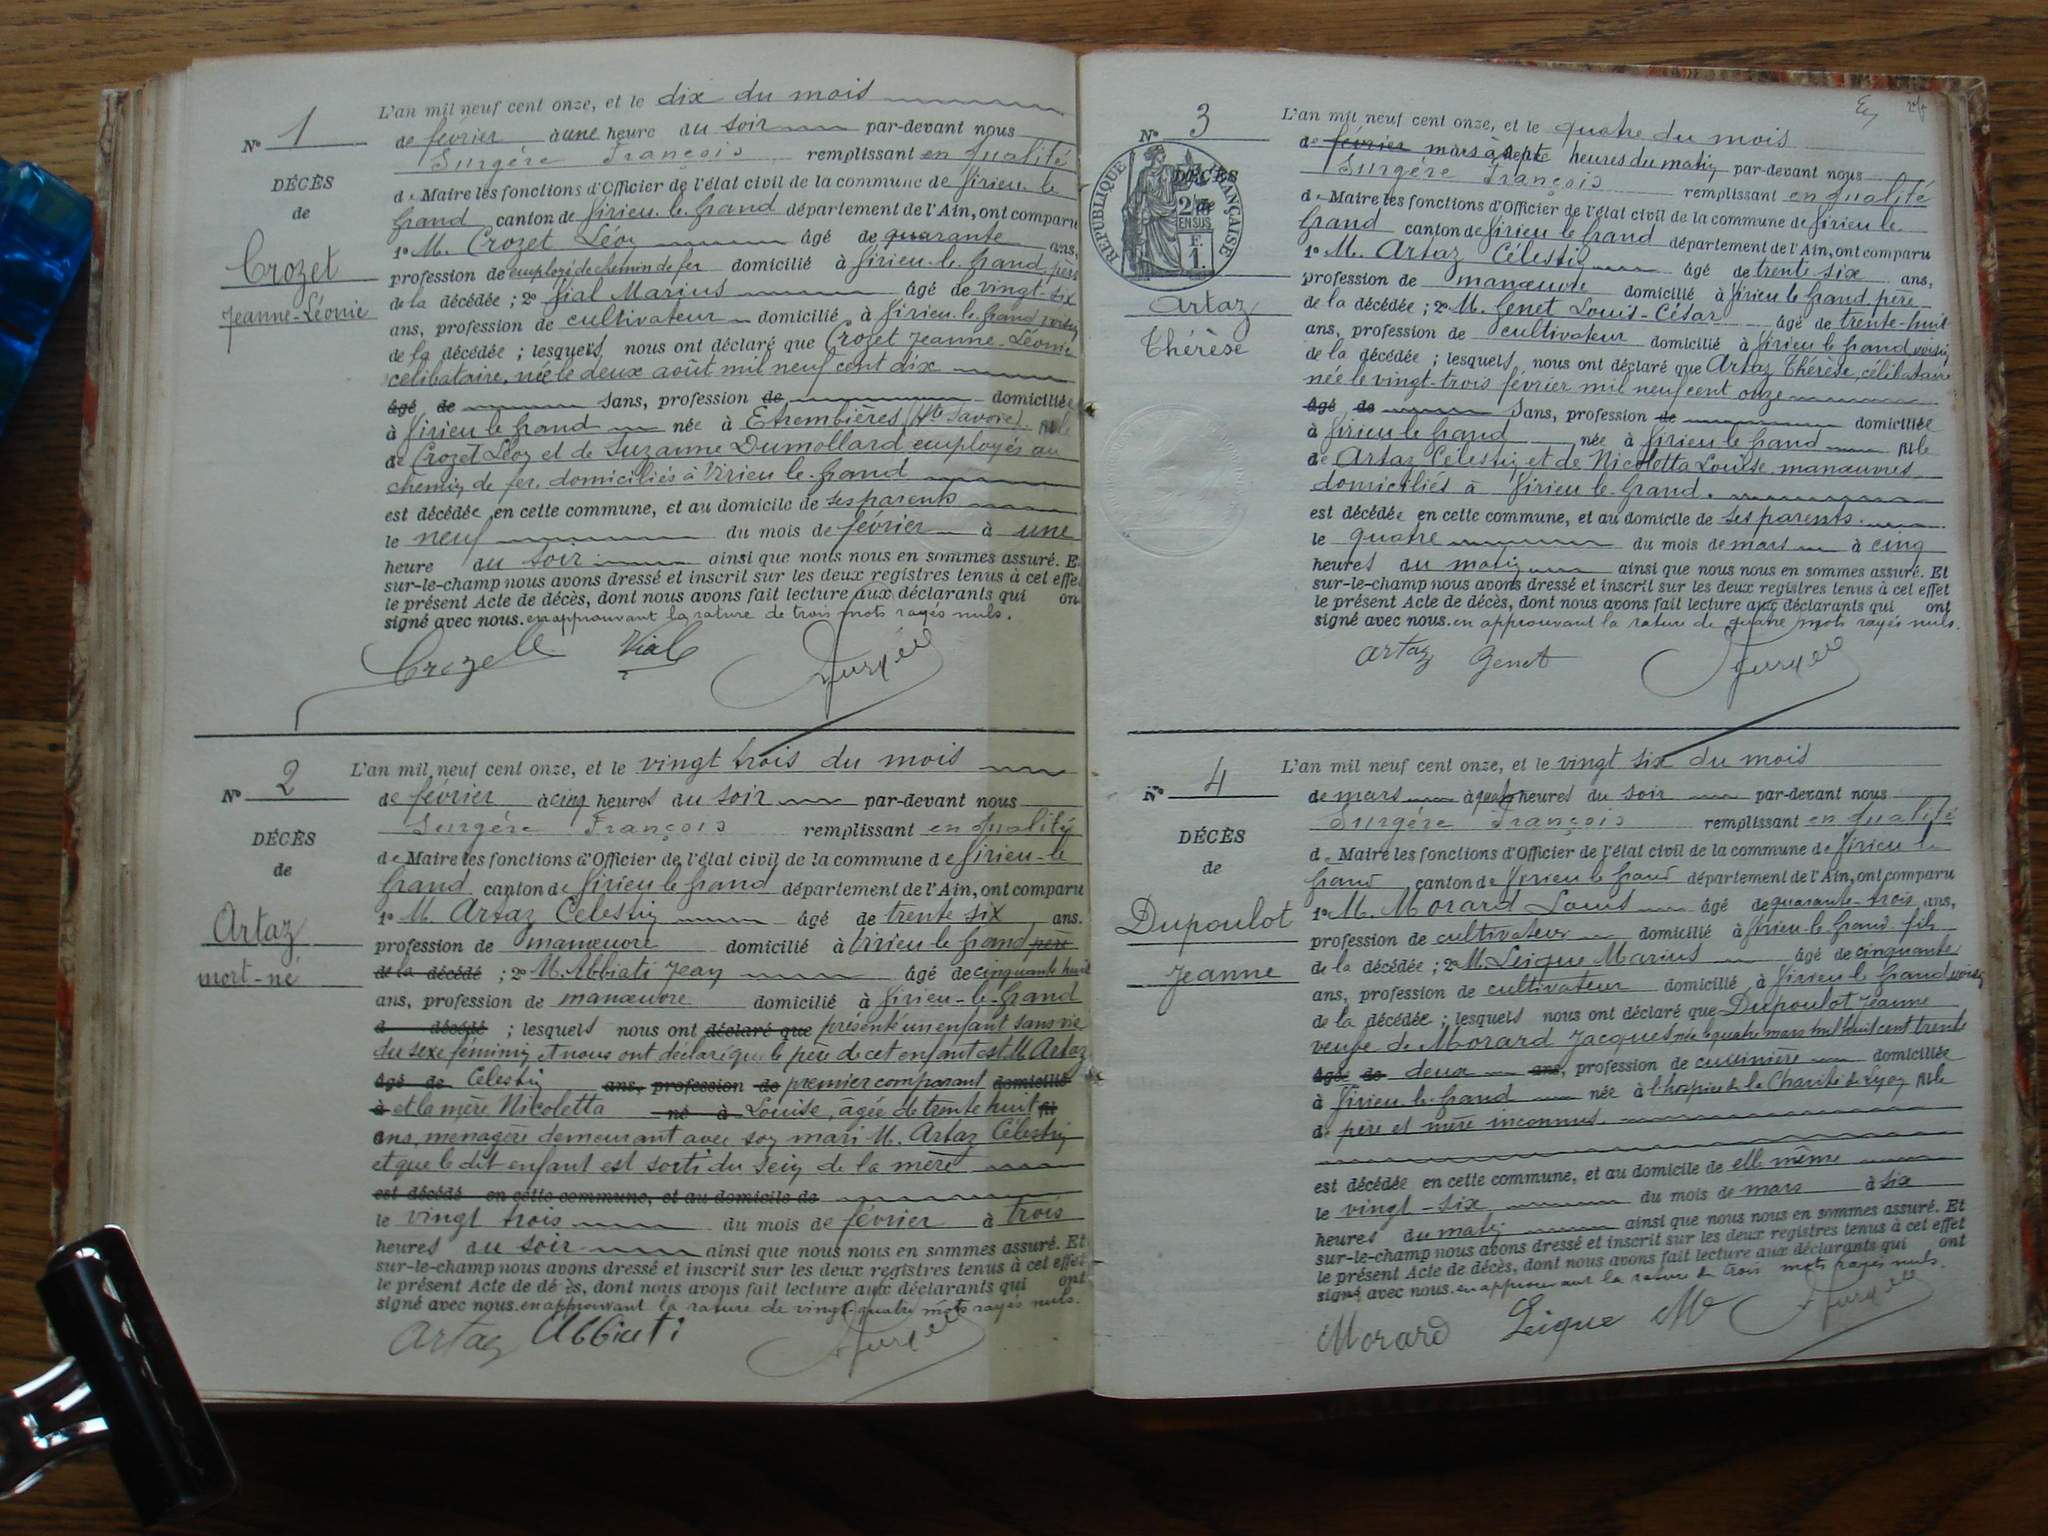 L'an mil neuf cent onze, et le dix du mois
N° 1
de février à une heure du soir par-devant nous
Surgère François remplissant en qualité
DÉCÈS
de Maire les fonctions d'Officier de l'état civil de la commune de Virieu-le-
de
Grand canton de Virieu-le-Grand département de l'Ain, ont comparu
1° M. Crozet Léon âgé de quarante ans,
Crozet
profession de employé de chemin de fer domicilié à Virieu-le-Grand, père
Jeanne-Léonie
de la décédée ; 2° Vial Marius âgé de vingt-six
ans, profession de cultivateur domicilié à Virieu-le-Grand voisin
de la décédée ; lesquels nous ont déclaré que Crozet Jeanne-Léonie
célibataire, née le deux août mil neuf cent dix
âgé de sans, profession de domiciliée
à Virieu le Grand née à Etrembières (Hte Savoie) fille
de Crozet Léon et de Suzanne Dumollard employés au
chemin de fer, domiciliés à Virieu le Grand
est décédée en cette commune, et au domicile de ses parents
le neuf du mois de février à une
heure du soir ainsi que nous nous en sommes assuré. Et
sur-le-champ nous avons dressé et inscrit sur les deux registres tenus à cet effet
le présent Acte de décès, dont nous avons fait lecture aux déclarants qui ont
signé avec nous. en approuvant la rature de trois mots rayés nuls.
Crozet L Vial Surgère
L'an mil neuf cent onze, et le vingt trois du mois
N° 2
de février à cinq heures du soir par-devant nous
Surgère François remplissant en qualité
DÉCÈS
de Maire les fonctions d'Officier de l'état civil de la commune de Virieu-le
de
Grand canton de Virieu le Grand département de l'Ain, ont comparu
1° M. Artaz Célestin âgé de trente six ans.
Artaz
profession de manœuvre domicilié à Virieu le Grand père
mort-né
de la décédé ; 2° M. Abbiati Jean âgé de cinquante huit
ans, profession de manœuvre domicilié à Virieu-le-Grand
d décédé ; lesquels nous ont déclaré que présenté un enfant sans vie
du sexe féminin et nous ont déclaré que le père de cet enfant est M. Artaz
âgé de Célestin ans, profession de premier comparant domicilié
à et la mère Nicoletta né à Louise, âgée de trente huit fil
ans, ménagère demeurant avec son mari M. Artaz Célestin
et que le dit enfant est sorti du sein de la mère
est décédé en cette commune, et au domicile de
le vingt trois du mois de février à trois
heures du soir ainsi que nous nous en sommes assuré. Et
sur-le-champ nous avons dressé et inscrit sur les deux registres tenus à cet effet
le présent Acte de décès, dont nous avons fait lecture aux déclarants qui ont
signé avec nous. en approuvant la rature de vingt-quatre mots rayés nuls.
Artaz Abbiati Surgère
L'an mil neuf cent onze, et le quatre du mois
N° 3
de février mars à sept heures du matin par-devant nous
Surgère François remplissant en qualité
RÉPUBLIQUE FRANÇAISE
DÉCÈS
de Maire les fonctions d'Officier de l'état civil de la commune de Virieu le
de
2/10
EN SUS
F.
1.
Grand canton de Virieu le Grand département de l'Ain, ont comparu
1° M. Artaz Célestin âgé de trente six ans,
profession de manœuvre domicilié à Virieu le Grand, père
Artaz
de la décédée ; 2° M. Genet Louis-César âgé de trente-huit
Thérèse
ans, profession de cultivateur domicilié à Virieu le Grand voisin
de la décédée ; lesquels nous ont déclaré que Artaz Thérèse, célibataire
née le vingt-trois février mil neuf cent onze
âgé de sans, profession de domiciliée
à Virieu le Grand née à Virieu le Grand fille
de Artaz Célestin et de Nicoletta Louise manœuvres
domiciliés à Virieu le Grand.
est décédée en cette commune, et au domicile de ses parents.
le quatre du mois de mars à cinq
heures du matin ainsi que nous nous en sommes assuré. Et
sur-le-champ nous avons dressé et inscrit sur les deux registres tenus à cet effet
le présent Acte de décès, dont nous avons fait lecture aux déclarants qui ont
signé avec nous. en approuvant la rature de quatre mots rayés nuls.
Artaz Genet Surgère
L'an mil neuf cent onze, et le vingt six du mois
N° 4
de mars à quatre heures du soir par-devant nous
Surgère François remplissant en qualité
DÉCÈS
de Maire les fonctions d'Officier de l'état civil de la commune de Virieu le
de
Grand canton de Virieu le Grand département de l'Ain, ont comparu
1° M. Morard Louis âgé de quarante-trois ans,
Dupoulot
profession de cultivateur domicilié à Virieu le Grand fils
Jeanne
de la décédée ; 2° M. Leique Marius âgé de cinquante
ans, profession de cultivateur domicilié à Virieu le Grand voisin
de la décédée ; lesquels nous ont déclaré que Dupoulot Jeanne
veuve de Morard Jacques née le quatre mars mil huit cent trente
âgée de deux ans, profession de cuisinière domiciliée
à Virieu le Grand née à l'hospice de la Charité de Lyon fille
de père et mère inconnus.
est décédée en cette commune, et au domicile de elle même
le vingt-six du mois de mars à six
heures du matin ainsi que nous nous en sommes assuré. Et
sur-le-champ nous avons dressé et inscrit sur les deux registres tenus à cet effet
le présent Acte de décès, dont nous avons fait lecture aux déclarants qui ont
signé avec nous. en approuvant la rature de trois mots rayés nuls.
Morard Leique M Surgère